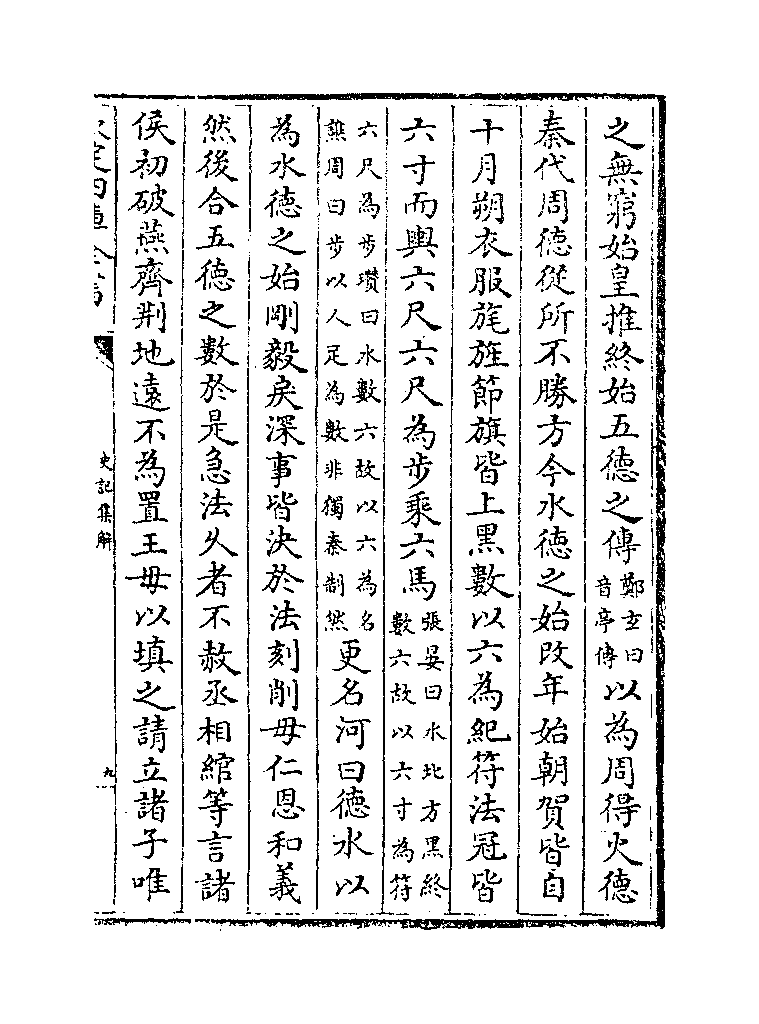 之無窮始皇推終始五德之傳鄭玄曰音亭傳以為周得火德
秦代周德從所不勝方今水德之始改年始朝賀皆自
十月朔衣服旄旌節旗皆上黑數以六為紀符法冠皆
六寸而輿六尺六尺為步乘六馬張晏曰水北方黑終數六故以六寸為符
六尺為步瓚曰水數六故以六為名譙周曰步以人足為數非獨秦制然更名河曰德水以
為水德之始剛毅戾深事皆決於法刻削毋仁恩和義
然後合五德之數於是急法久者不赦丞相綰等言諸
侯初破燕齊荆地遠不為置王毋以填之請立諸子唯
史記集解
九